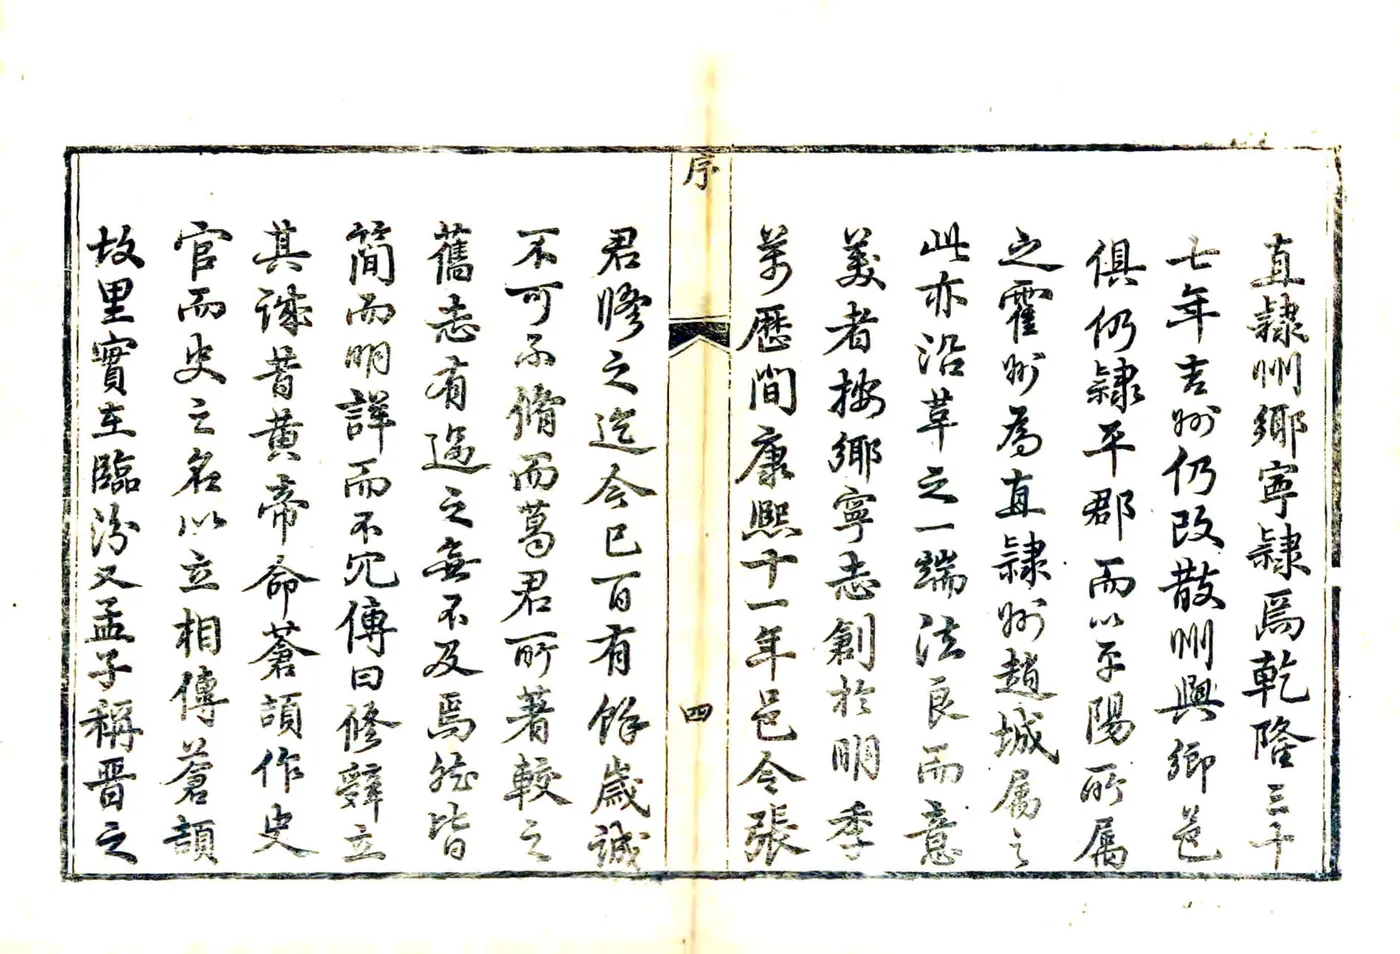 直隷州鄉寧隷焉乾隆三十
七年吉州仍改散州與鄉邑
俱仍隷平郡而以平陽所属
之霍州為直隷州趙城属之
此亦沿革之一端法良而意
美者按鄉寧志創於明季
萬歷間康熙十一年邑令張
序
四
君修之迄今已百有餘歲誠
不可不脩而葛君所著較之
舊志有過之無不及焉然皆
簡而明詳而不冗傳曰修辭立
其誠昔黄帝命蒼頡作史
官而史之名以立相傳蒼頡
故里實在臨汾又孟子稱晋之